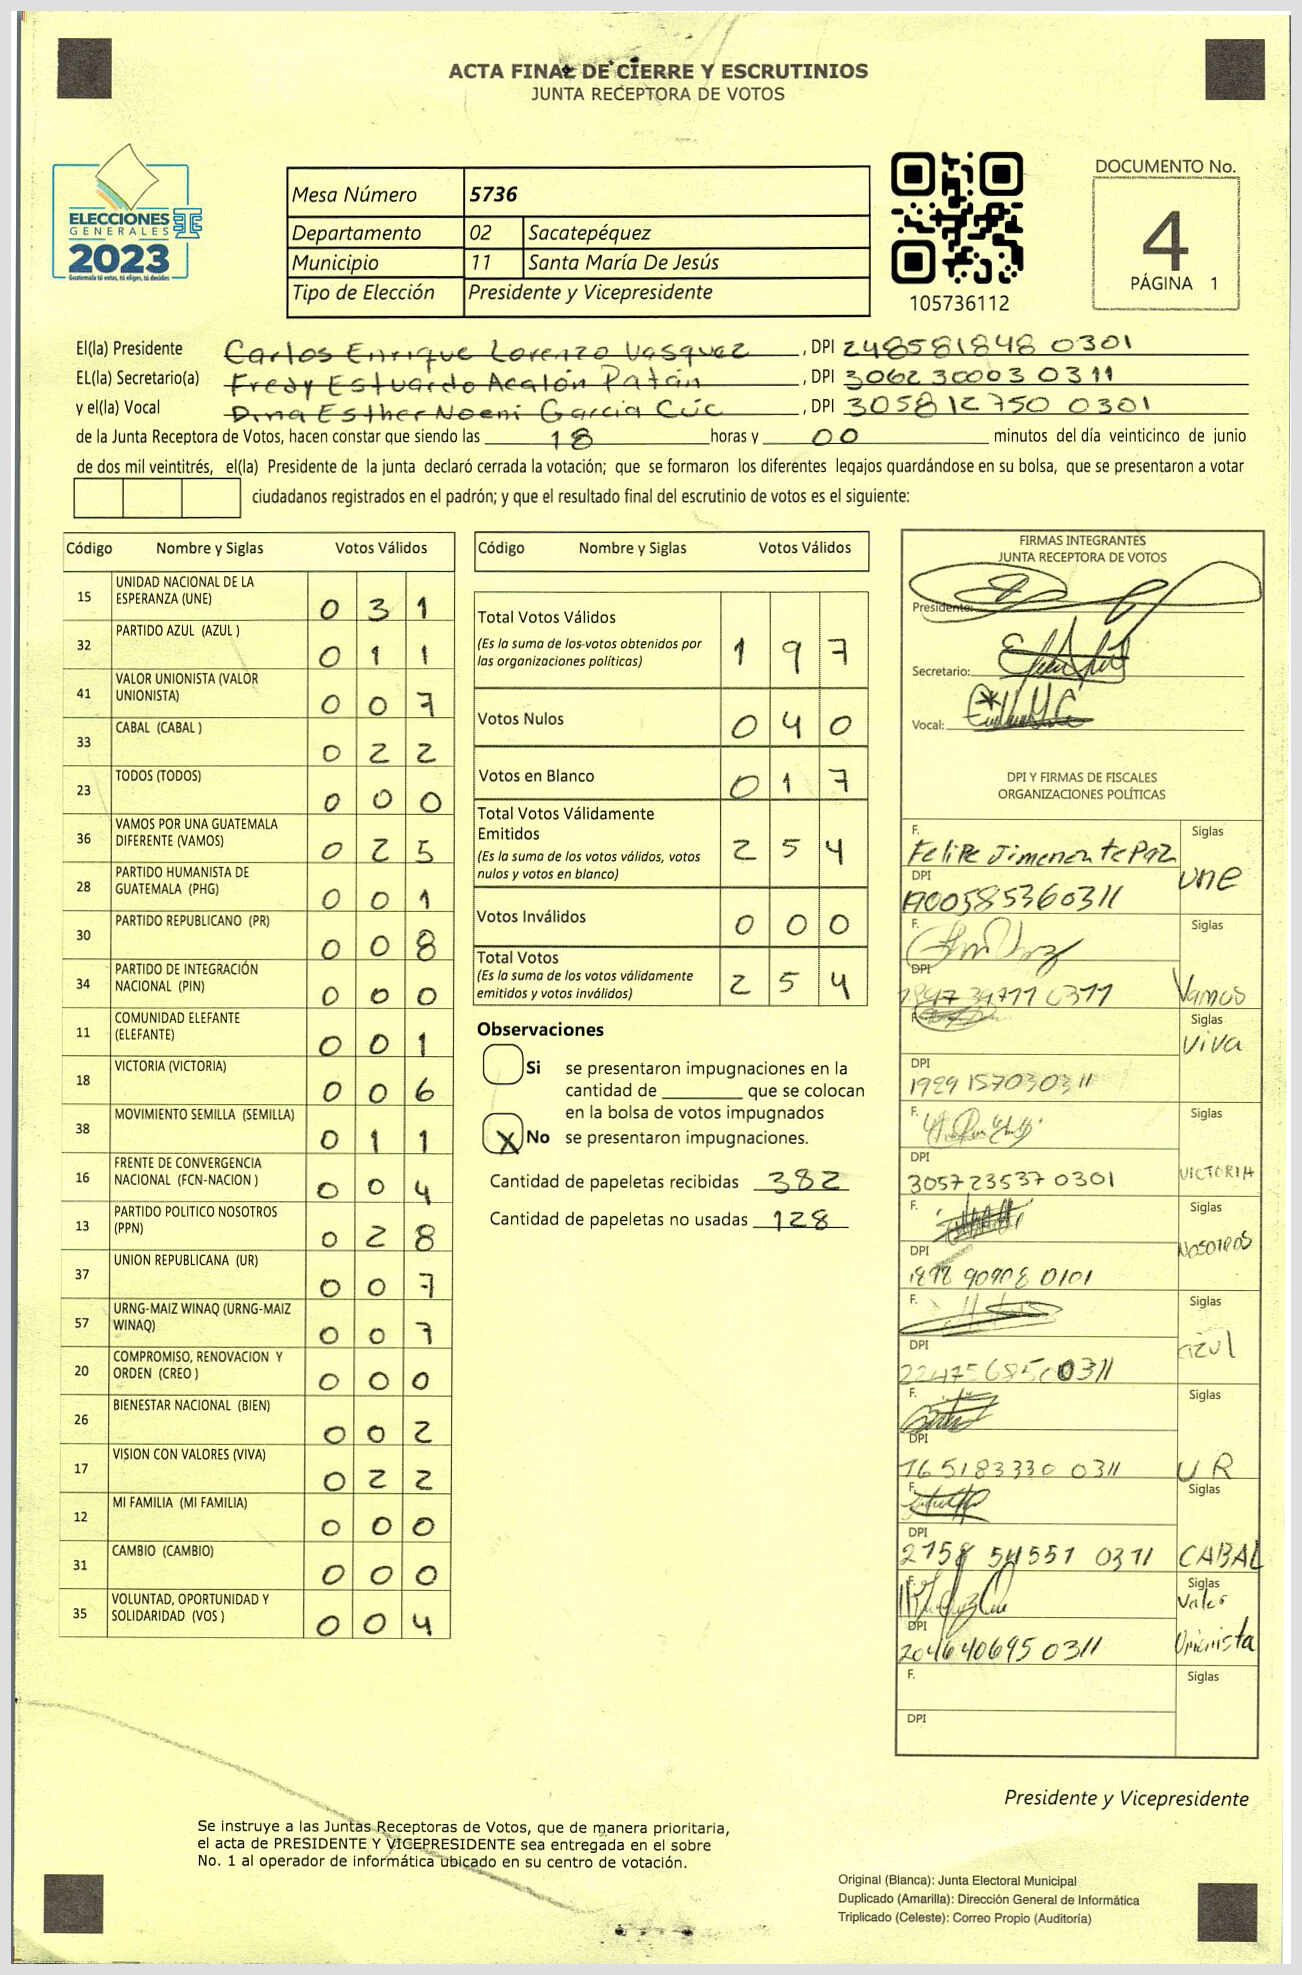 ACTA FINAL DE CIERRE Y ESCRUTINIOS
JUNTA RECEPTORA DE VOTOS
ELECCIONES
GENERALES
2023
Guatemala tú votas, tú eliges, tú decides
Mesa Número 5736
Departamento 02 Sacatepéquez
Municipio 11 Santa María De Jesús
Tipo de Elección Presidente y Vicepresidente
105736112
DOCUMENTO No.
4
PÁGINA 1
El(la) Presidente Carlos Enrique Lorenzo Vasquez, DPI 248581848 0301
EL(la) Secretario(a) Fredy Estuardo Acalón Patán, DPI 306230003 0311
y el(la) Vocal Dina Esther Noemi Garcia Cúc, DPI 305812750 0301
de la Junta Receptora de Votos, hacen constar que siendo las 18 horas y 00 minutos del día veinticinco de junio
de dos mil veintitrés, el(la) Presidente de la junta declaró cerrada la votación; que se formaron los diferentes legajos guardándose en su bolsa, que se presentaron a votar
ciudadanos registrados en el padrón; y que el resultado final del escrutinio de votos es el siguiente:
Código Nombre y Siglas Votos Válidos
15 UNIDAD NACIONAL DE LA ESPERANZA (UNE) 0 3 1
32 PARTIDO AZUL (AZUL ) 0 1 1
41 VALOR UNIONISTA (VALOR UNIONISTA) 0 0 7
33 CABAL (CABAL ) 0 2 2
23 TODOS (TODOS) 0 0 0
36 VAMOS POR UNA GUATEMALA DIFERENTE (VAMOS) 0 2 5
28 PARTIDO HUMANISTA DE GUATEMALA (PHG) 0 0 1
30 PARTIDO REPUBLICANO (PR) 0 0 8
34 PARTIDO DE INTEGRACIÓN NACIONAL (PIN) 0 0 0
11 COMUNIDAD ELEFANTE (ELEFANTE) 0 0 1
18 VICTORIA (VICTORIA) 0 0 6
38 MOVIMIENTO SEMILLA (SEMILLA) 0 1 1
16 FRENTE DE CONVERGENCIA NACIONAL (FCN-NACION ) 0 0 4
13 PARTIDO POLITICO NOSOTROS (PPN) 0 2 8
37 UNION REPUBLICANA (UR) 0 0 7
57 URNG-MAIZ WINAQ (URNG-MAIZ WINAQ) 0 0 7
20 COMPROMISO, RENOVACION Y ORDEN (CREO ) 0 0 0
26 BIENESTAR NACIONAL (BIEN) 0 0 2
17 VISION CON VALORES (VIVA) 0 2 2
12 MI FAMILIA (MI FAMILIA) 0 0 0
31 CAMBIO (CAMBIO) 0 0 0
35 VOLUNTAD, OPORTUNIDAD Y SOLIDARIDAD (VOS ) 0 0 4
Código Nombre y Siglas Votos Válidos
Total Votos Válidos
(Es la suma de los votos obtenidos por las organizaciones políticas) 1 9 7
Votos Nulos 0 4 0
Votos en Blanco 0 1 7
Total Votos Válidamente Emitidos
(Es la suma de los votos válidos, votos nulos y votos en blanco) 2 5 4
Votos Inválidos 0 0 0
Total Votos
(Es la suma de los votos válidamente emitidos y votos inválidos) 2 5 4
Observaciones
Si se presentaron impugnaciones en la
cantidad de ________ que se colocan
en la bolsa de votos impugnados
X No se presentaron impugnaciones.
Cantidad de papeletas recibidas 382
Cantidad de papeletas no usadas 128
FIRMAS INTEGRANTES
JUNTA RECEPTORA DE VOTOS
Presidente:
Secretario:
Vocal:
DPI Y FIRMAS DE FISCALES
ORGANIZACIONES POLÍTICAS
F. Felipe Siglas
DPI 1700585360311 une
F. Siglas
DPI Vamos
F. Siglas
DPI 1929157030311 Viva
F. Siglas
DPI 305723537 0301 VICTORIA
F. Siglas
DPI 1878 90908 0101 NOSOTROS
F. Siglas
DPI azul
F. Siglas
DPI 165183330 0311 UR
F. Siglas
DPI 2758 54551 0311 CABAL
F. Siglas
DPI 204640695 0311 Valor Unionista
F. Siglas
DPI
Presidente y Vicepresidente
Se instruye a las Juntas Receptoras de Votos, que de manera prioritaria,
el acta de PRESIDENTE Y VICEPRESIDENTE sea entregada en el sobre
No. 1 al operador de informática ubicado en su centro de votación.
Original (Blanca): Junta Electoral Municipal
Duplicado (Amarilla): Dirección General de Informática
Triplicado (Celeste): Correo Propio (Auditoría)